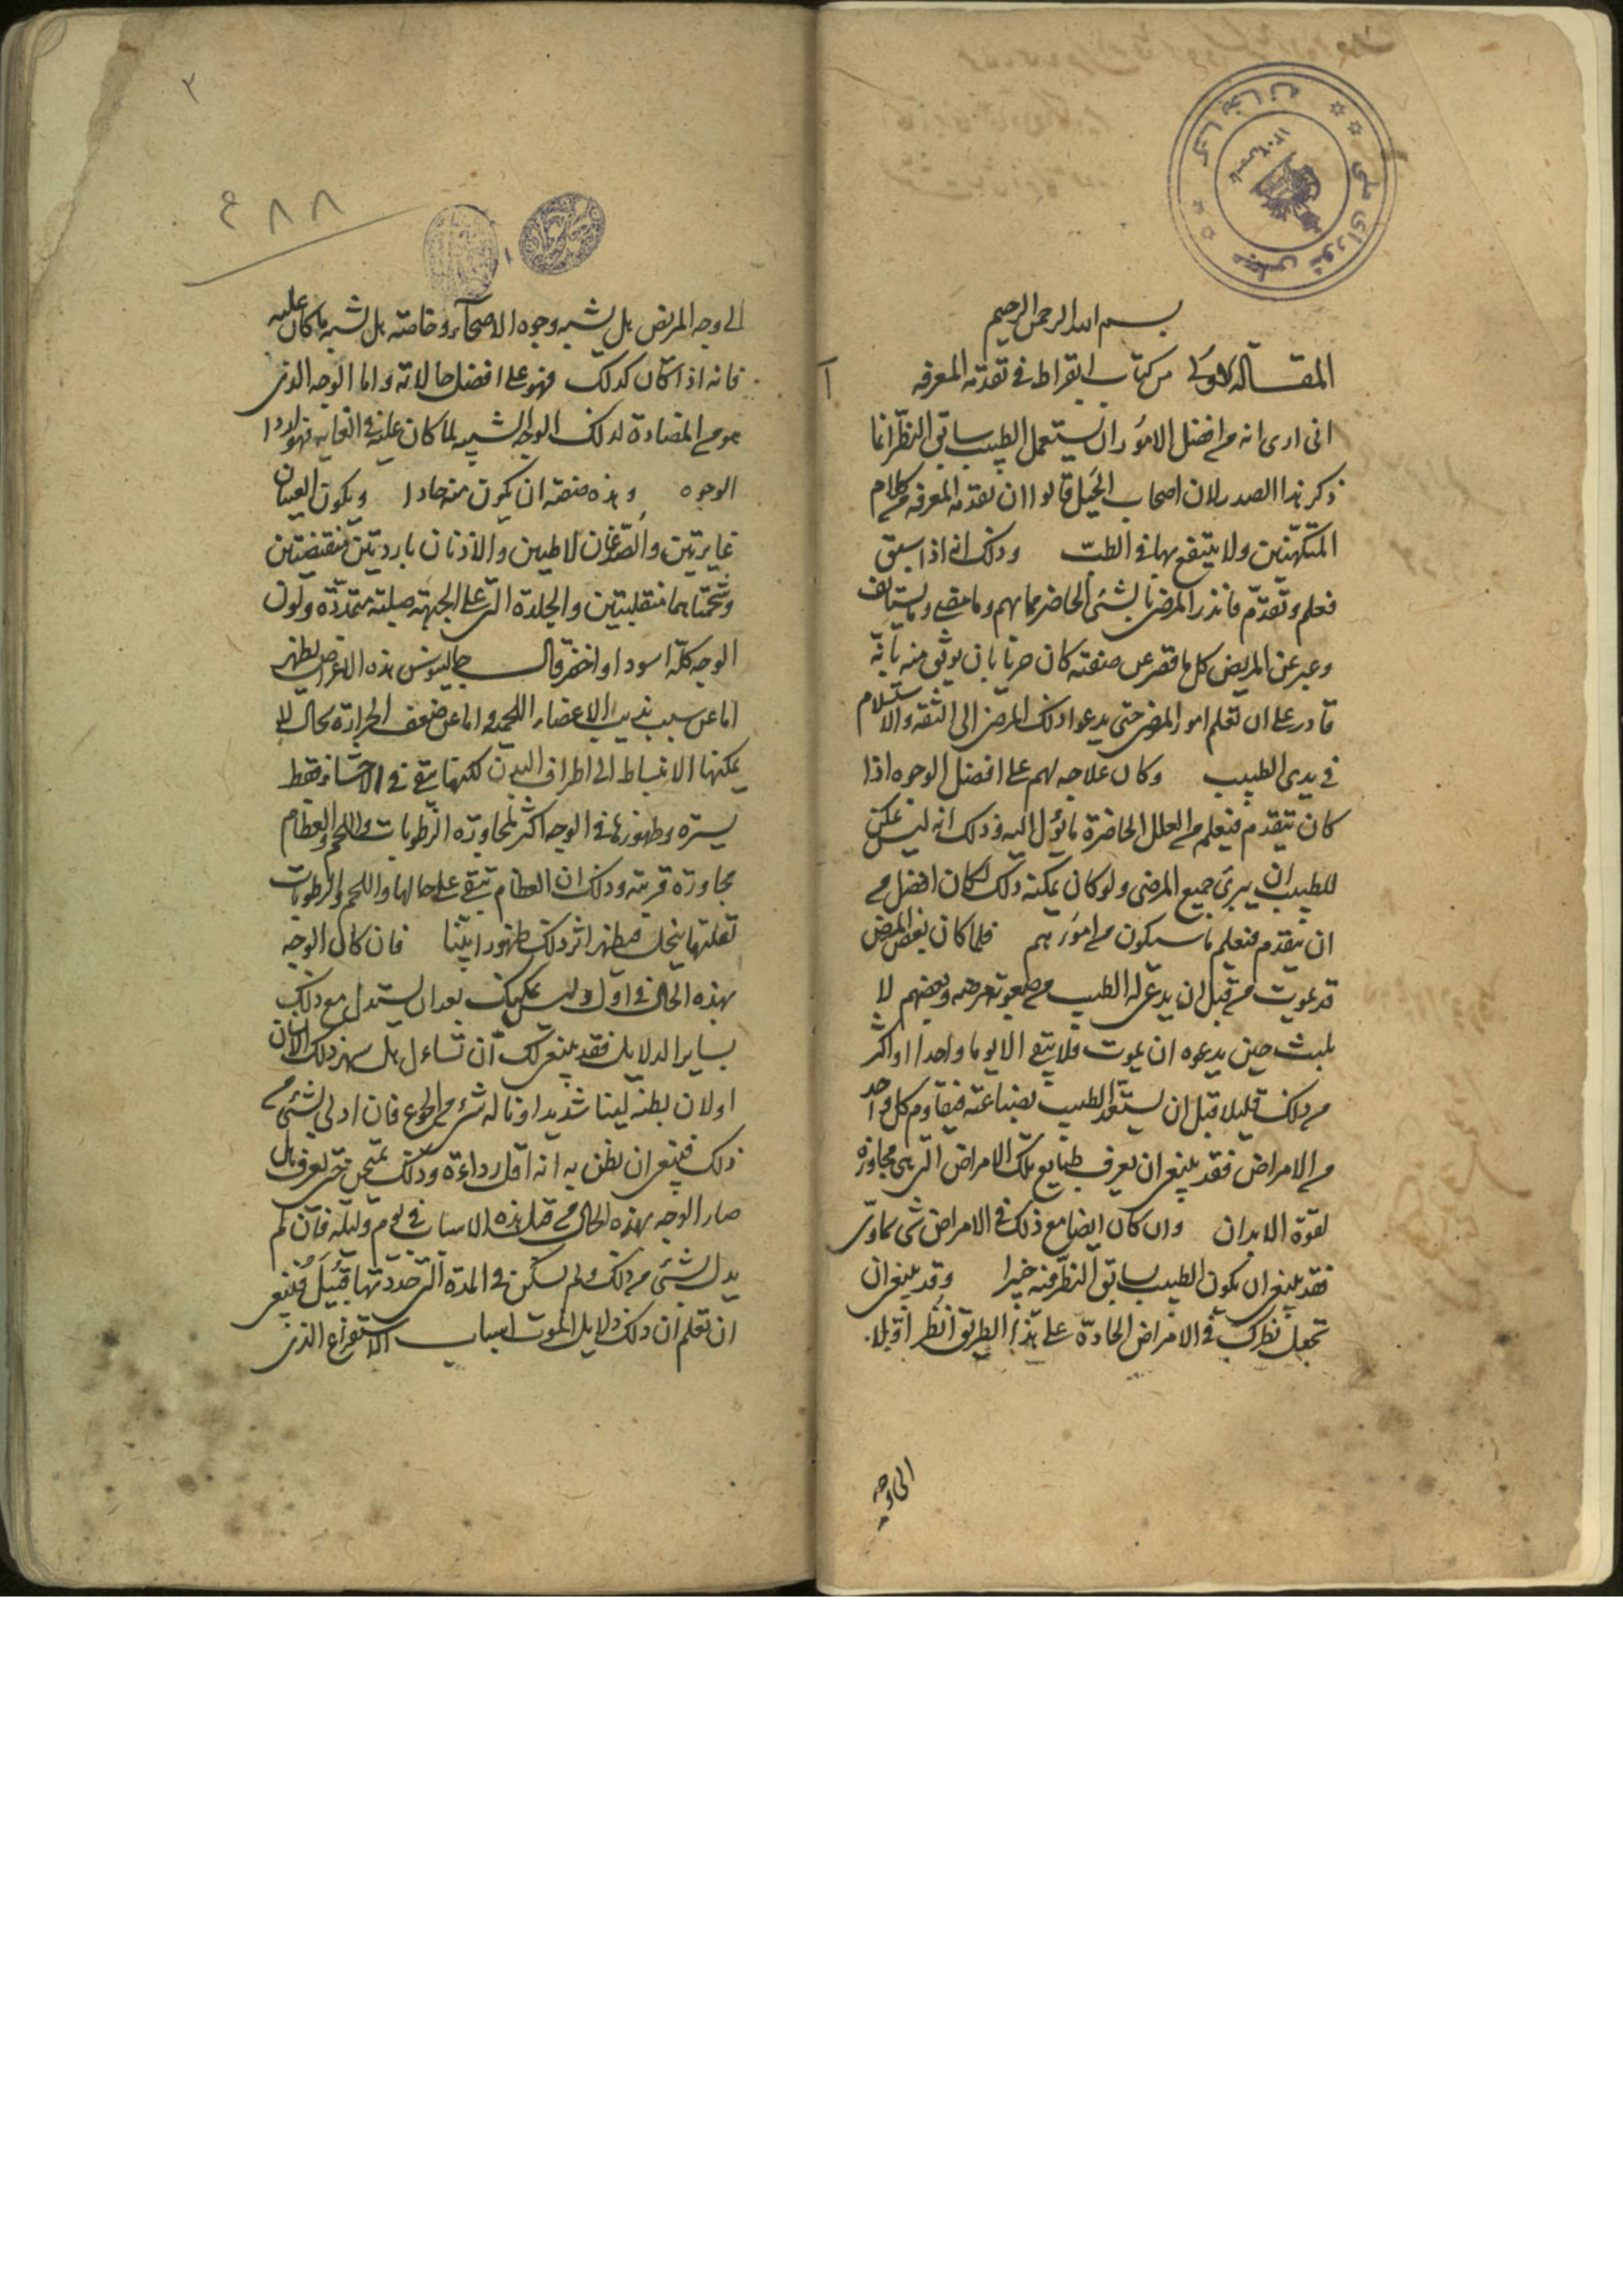 بسم الله الرحمن الرحيم
المقالة الاولى من كتاب ابقراط فى تقدمة المعرفه
انى ارى انه من افضل الامور ان يستعمل الطبيب سابق النظر انما
ذكر هذا الصدر لان اصحاب الحيل قالوا ان تقدمة المعرفه من كلام
المتكهنين ولا ينتفع بها فى الطب وذلك انه اذا سبق
فعلم وتقدم فانذر المرضى بالشئ الحاضر مما بهم وما مضى وما يستانف
وعبر عن المريض كل ما قصر عن صفته كان حريا بان يوثق منه بانه
قادر على ان تعلم امور المرضى حتى يدعوا ذلك المرضى الى الثقه والاستسلام
فى يدى الطبيب وكان علاجه لهم على افضل الوجوه اذا
كان يتقدم فيعلم من العلل الحاضرة ما يؤل اليه وذلك انه ليس يمكن
للطبيب ان يبرئ جميع المرضى ولو كان يمكنه ذلك لكان افضل من
ان يتقدم فيعلم ما سيكون من امورهم فلما كان بعض المرضى
قد يموت من قبل ان يدعى له الطبيب من صعوبة مرضه وبعضهم لا
يلبث حين يدعوه ان يموت فلا يبقى الا يوما واحدا او اكثر
من ذلك قليلا قبل ان يستعد الطبيب بصناعته فيقاوم كل واحد
من الامراض فقد ينبغى ان يعرف طبايع تلك الامراض التى هى مجاوزه
لقوة الابدان وان كان ايضا مع ذلك فى الامراض شى سماوى
فقد ينبغى ان يكون الطبيب سابق النظر فيه خبيرا وقد ينبغى ان
تجعل نظرك فى الامراض الحادة على هذا الطريق انظر اولا
الى وجه
٢
٢٨٨
الى وجه المريض هل يشبه وجوه الاصحآء وخاصته هل يشبه ما كان عليه
فانه اذا كان كذلك فهو على افضل حالاته واما الوجه الذى
هو من المضادة لذلك الوجه الشبيه لما كان عليه فى الغايه فهو اردا
الوجوه وهذه صفته ان يكون منه حادا ويكون العينان
غايرتين والصدغان لاطيين والاذنان باردتين منقبضتين
وشحمتاهما منقلبتين والجلدة التى على الجبهه صلبة متمددة ولون
الوجه كله اسود او اخضر قال جالينوس هذه الاعراض تظهر
اما عن سبب يذيب الاعضاء اللحميه واما عن ضعف الحرارة بحال لا
يمكنها الانبساط الى اطراف البدن لكنها تبقى فى الاحشاء فقط
يسيرة وظهورها فى الوجه اكثر لمجاورة الرطوبات واللحم والعظام
مجاورة قريبة وذلك ان العظام تبقى على حالها واللحم والرطوبات
لقلتها ينحل فيظهر اثر ذلك ظهورا بينا فان كان الوجه
بهذه الحال فى اول وليس يمكنك بعد ان يستدل مع ذلك
بساير الدلايل فقد ينبغى لك ان تسائل هل سهر ذلك الانسان
او لان بطنه لينا شديدا او ناله شئ من الجوع فان ادلى بشئ من
ذلك فينبغى ان يظن به انه اقل رداءة وذلك يمتحن حتى يعرف هل
صار الوجه بهذه الحال من قبل هذه الاسباب فى يوم وليله فان لم
يدل بشئ من ذلك ولم يسكن فى المدة التى حددتها قبيل فينبغى
ان تعلم ان ذلك دلايل الموت اسباب الاستفراغ الذى